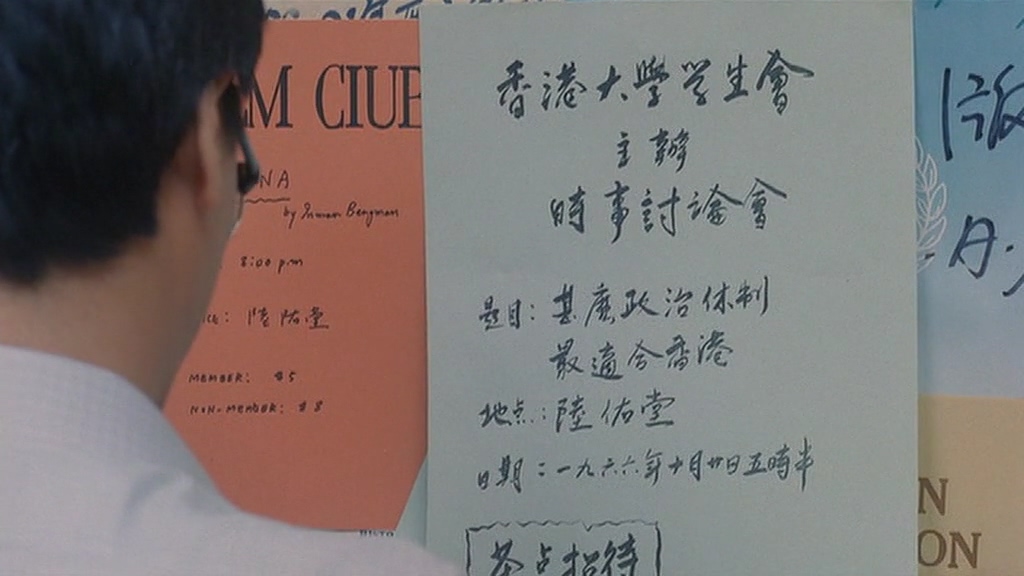 M CIUB
NA
by Inman Bengman
8:00 pm
陸佑堂
MEMBER: $5
NON-MEMBER: $8
香港大學学生會
主辦
時事討論會
題目: 甚麽政治体制
最適合香港
地点: 陸佑堂
日期: 一九六六年十月廿日五時半
茶点招待
N
ON